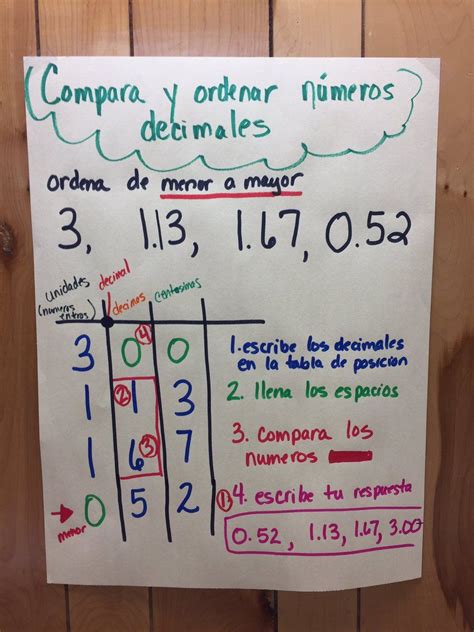 Compara y ordenar números
decimales
ordena de menor a mayor
3, 1.13, 1.67, 0.52
unidades
(numeros
entros)
decimal
decimos
centesimas
3 0 4 0
1 2 1 3
1 6 3 7
menor
0 5 2 1
1. escribe los decimales
en la tabla de posicion
2. llena los espacios
3. compara los
numeros
4. escribe tu respuesta
0.52, 1.13, 1.67, 3.00